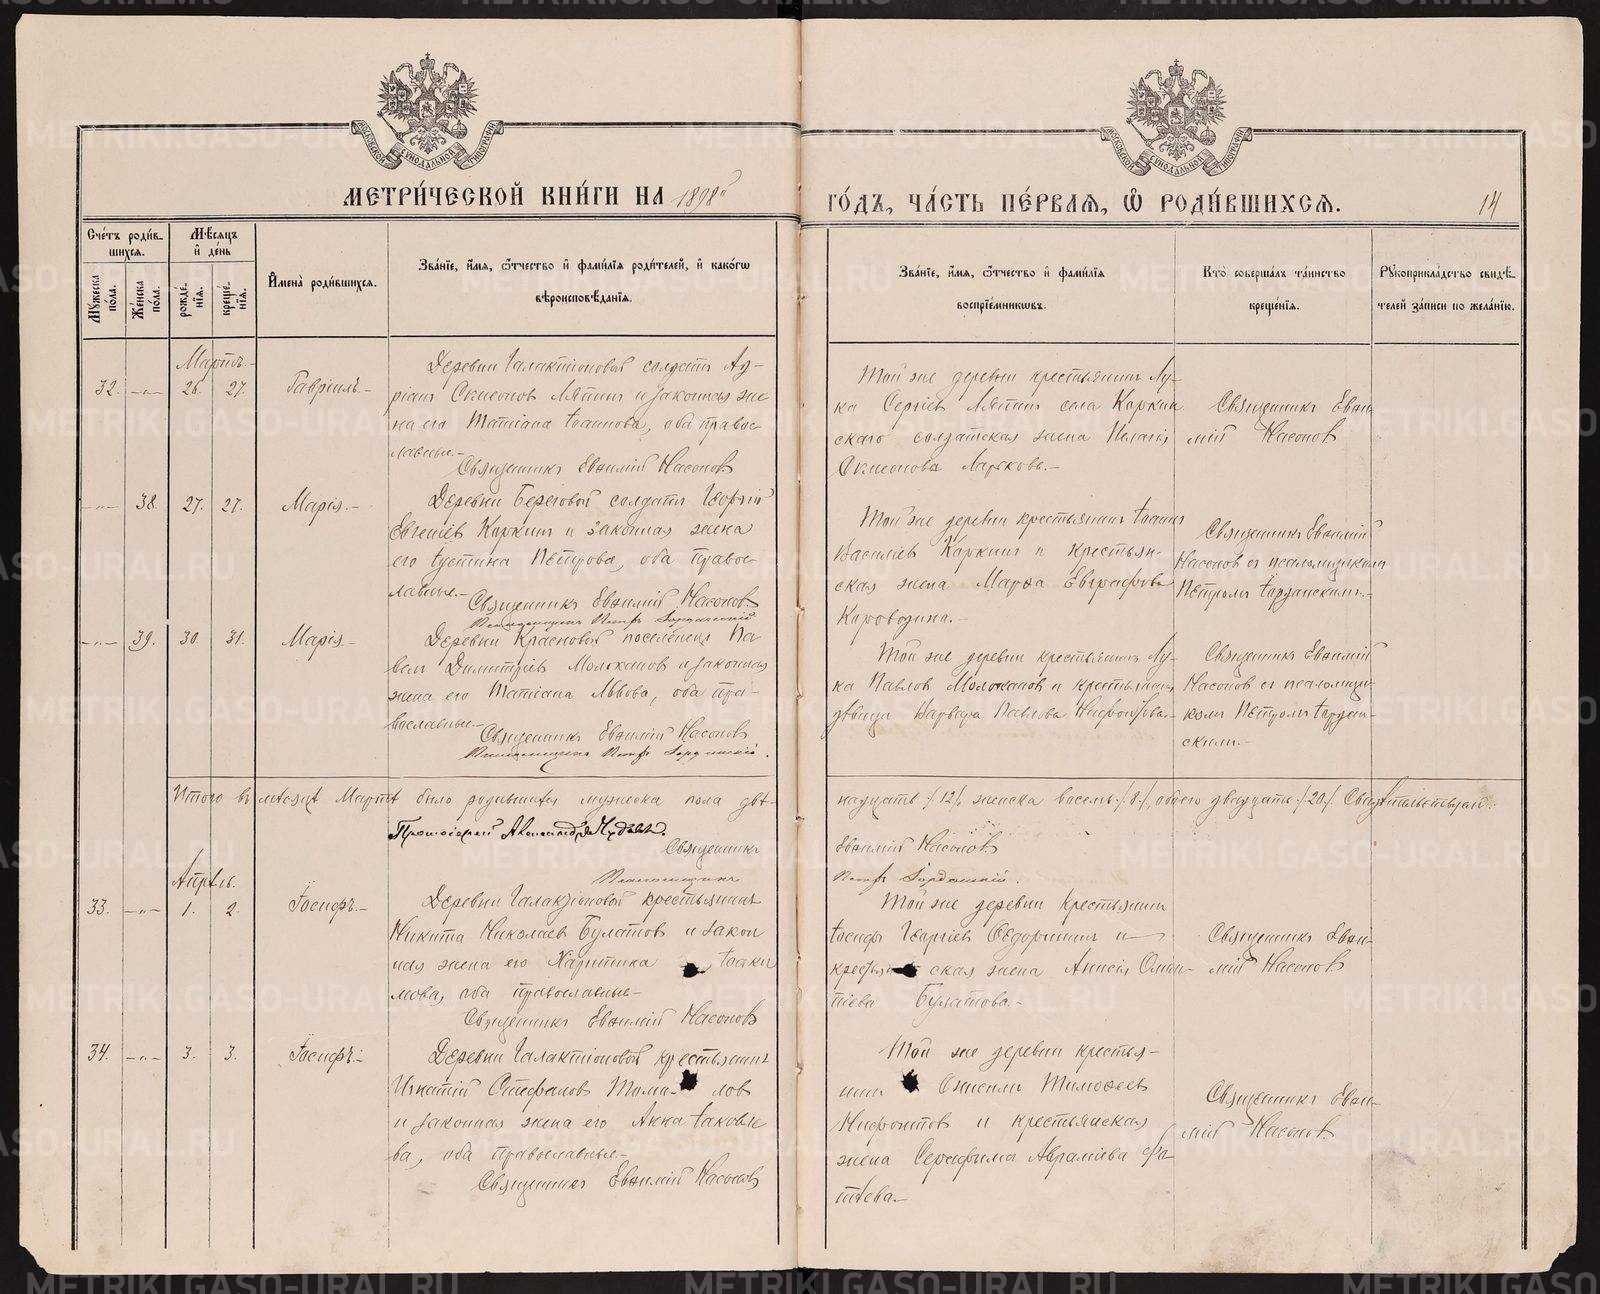 МЕТРИ́ЧЕСКОЙ КНИ́ГИ НА 1898й
ГО́ДЪ, ЧА́СТЬ ПЕ́РВАѦ, Ѽ РОДИ́ВШИХСѦ.
14
Сче́тъ роди́в-
шихся.
Мѣ́сяцъ
и де́нь
Му́жеска по́ла.
Же́нска по́ла.
рожде́-
нїя.
креще́-
нїя.
И҆мена̀ роди́вшихся.
Зва́нїе, и҆́мя, ѻ҆́тчество и҆ фами́лїя роди́телей, и҆ како́гѡ
вѣроисповѣ́данїя.
Зва́нїе, и҆́мя, ѻ҆́тчество и҆ фами́лїя
воспрїе́мниковъ.
Кто̀ соверша́лъ та́инство
креще́нїя.
Рꙋкоприкла́дство свидѣ́-
телей за́писи по жела́нїю.
Мартъ.
32. —„— 26. 27. Гавріилъ.—
Деревни Галактіоновой солдатъ Ад-
ріанъ Симеоновъ Ляпинъ и законная же
на его Татіана Іоаннова, оба правос-
лавные.—
Священникъ Евѳимій Насоновъ
Той же деревни крестьянинъ Лу-
ка Сергіевъ Ляпинъ села Каркин
скаго солдатская жена Пелагія
Симеонова
Священникъ Евѳи
мій Насоновъ
—„— 38. 27. 27. Марія.—
Деревни Береговой солдатъ Георгій
Евгеніевъ Каркинъ и законная жена
его Іустина Петрова, оба правос-
лавные.—
Священникъ Евѳимій Насоновъ.
Псаломщикъ Петръ
Той же деревни крестьянинъ Іоаннъ
Василіевъ Каркинъ и крестьян-
ская жена Марѳа Евграфова
Священникъ Евѳимій
Насоновъ съ псаломщикомъ
Петромъ
—„— 39. 30. 31. Марія.—
Деревни Красновой поселенецъ Па-
велъ Димитріевъ Молокановъ и законная
жена его Татіана Львова, оба пра-
вославные.—
Священникъ Евѳимій Насоновъ
Псаломщикъ Петръ
Той же деревни крестьянинъ Лу-
ка Павловъ Молокановъ и крестьянская
дѣвица Варвара Павлова
Священникъ Евѳимій
Насоновъ съ псаломщи-
комъ Петромъ
скимъ.—
Итого въ мѣсяцѣ Мартѣ было родившихся мужеска пола двѣ-
надцать /12/, женска восемь /8/, обоего двадцать /20/. Свидѣтельствуемъ:
Протоіерей Александръ
Священникъ
Евѳимій Насоновъ
Псаломщикъ
Петръ
Апрѣль.
33. —„— 1. 2. Іосифъ.—
Деревни Галактіоновой крестьянинъ
Никита Николаевъ Булатовъ и закон
ная жена его Харитина Іоаки
мова, оба православные—
Священникъ Евѳимій Насоновъ
Той же деревни крестьянинъ
Іосифъ Георгіевъ Ѳедоринъ и
крестьян ская жена Анисія
тіева Булатова.—
Священникъ Евѳи-
мій Насоновъ
34. —„— 3. 3. Іосифъ.—
Деревни Галактіоновой крестьянинъ
Игнатій Стефановъ
и законная жена его Анна Іаковле
ва, оба православные.—
Священникъ Евѳимій Насоновъ
Той же деревни крестья-
нинъ Онисимъ Тимоѳеевъ
и крестьянская
жена Серафима Авраміева
Священникъ Евѳи-
мій Насоновъ.
METRIKI.GASO-URAL.RU